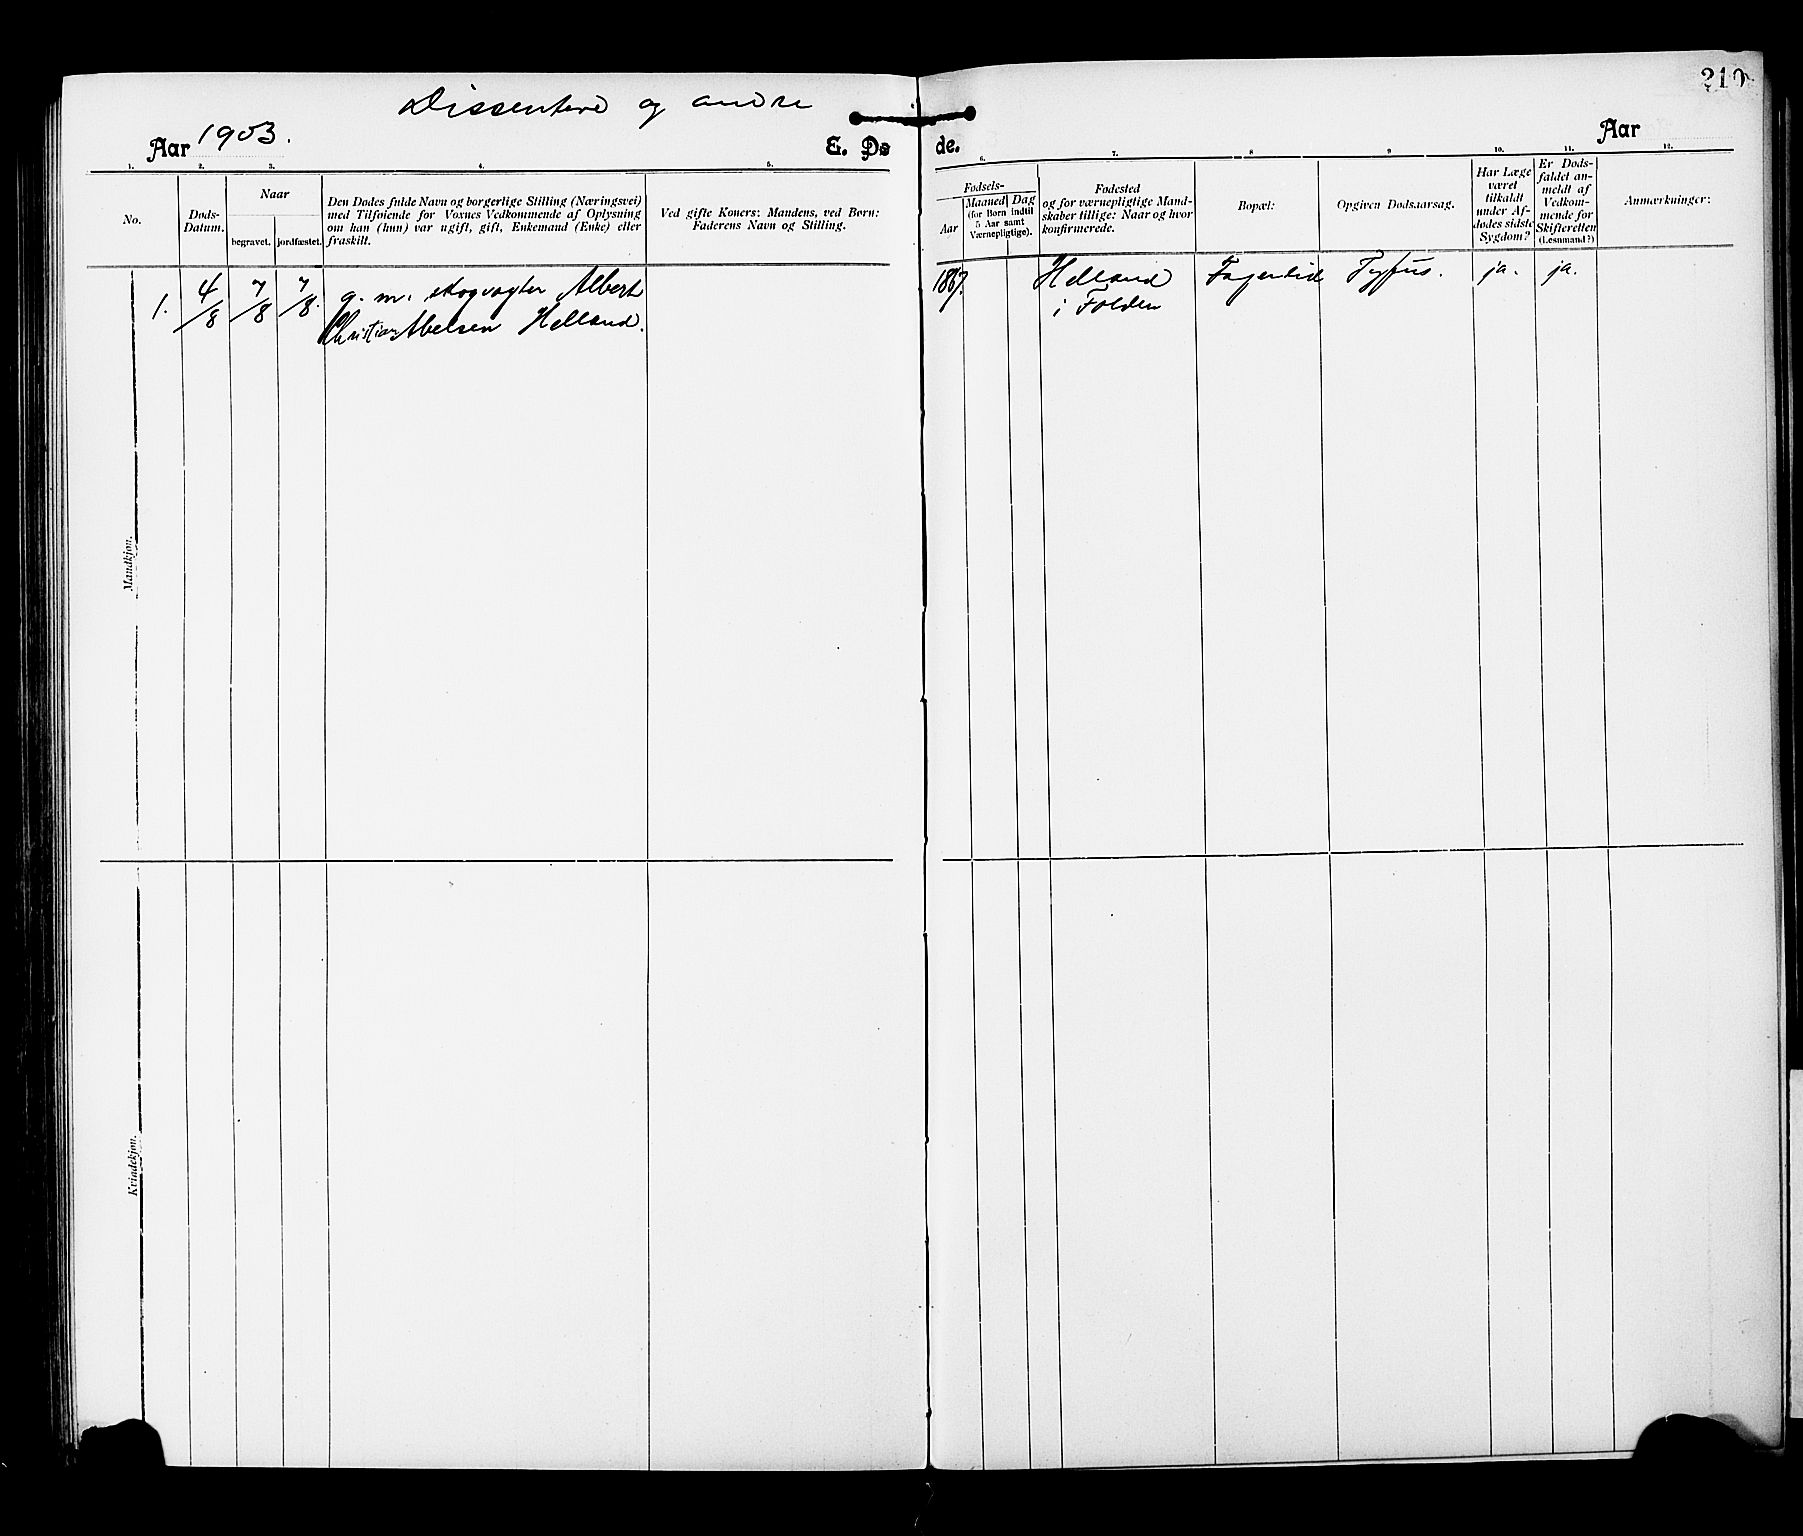 Dissentere og andre
210
Aar 1903.
E. Dø
de.
Aar
1.
2.
3.
4.
5.
6.
7.
8
9
10.
11.
12.
No.
Døds-
Datum.
Naar
begravet.
jordfæstet.
Den Dødes fulde Navn og borgerlige Stilling (Næringsvei)
med Tilføiende for Voxnes Vedkommende af Oplysning
om han (hun) var ugift, gift, Enkemand (Enke) eller
fraskilt.
Ved gifte Koner: Mandens, ved Børn:
Faderens Navn og Stilling.
Fødsels-
Aar
Maaned Dag
(for Børn indtil
5 Aar samt
Værnepligtige).
Fødested
og for værnepligtige Mand-
skaber tillige: Naar og hvor
konfirmerede.
Bopæl:
Opgiven Dødsaarsag.
Har Læge
været
tilkaldt
under Af-
dødes sidste
Sygdom?
Er Døds-
faldet an-
meldt af
Vedkom-
mende for
Skifteretten
(Lensmand?)
Anmærkninger:
Mandkjøn.
1.
4/8
7/8
7/8.
g. m. skogvogter Albert
Christian Abelsen Helland.
1867.
Helland
i Folden
Fagerlid
Tyfus.
ja.
ja.
Kvindekjøn.